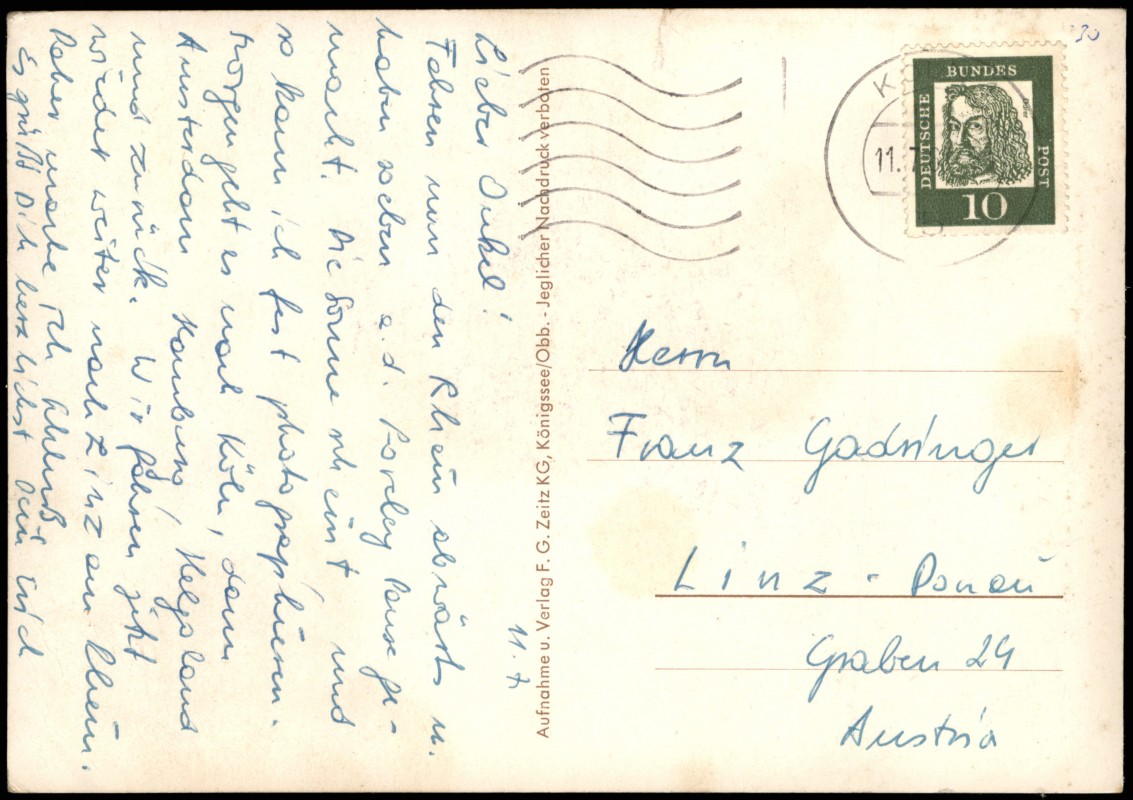 11. 7.
Lieber Onkel!
Fahren nun den Rhein abwärts u.
haben soeben a. d. Loreley Pause ge-
macht. Die Sonne scheint und
so kann ich fest photographieren.
Morgen geht es nach Köln, dann
Amsterdam, Hamburg, Helgoland
und zurück. Wir fahren jetzt
wieder weiter nach Linz am Rhein.
Daher mache ich Schluß
Es grüßt Dich herzlichst Dein Erich
Aufnahme u. Verlag F. G. Zeitz KG, Königssee/Obb. - Jeglicher Nachdruck verboten
DEUTSCHE
BUNDES
POST
10
K
11. 7
Herrn
Franz Gadringer
Linz - Donau
Graben 24
Austria
30